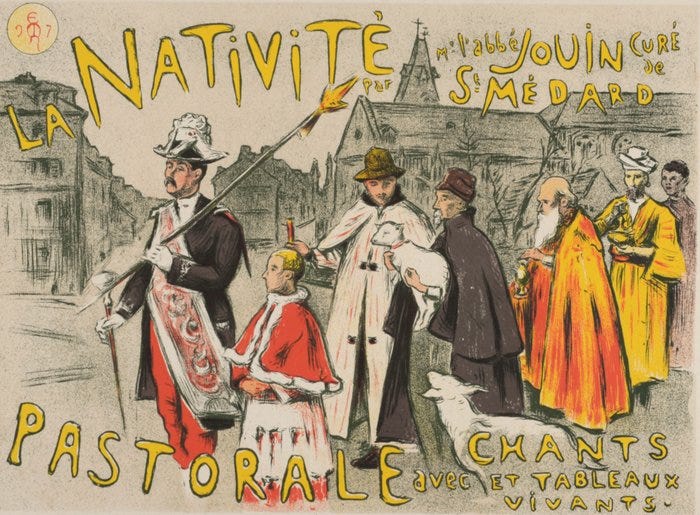 LA NATIVITÉ par Mr l'abbé JOUIN CURÉ de
St MÉDARD
PASTORALE avec CHANTS
ET TABLEAUX
VIVANTS.